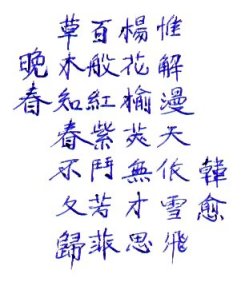 晚春
草木知春不久歸
百般紅紫鬥若菲
楊花榆莢無才思
惟解漫天依雪飛
韓愈